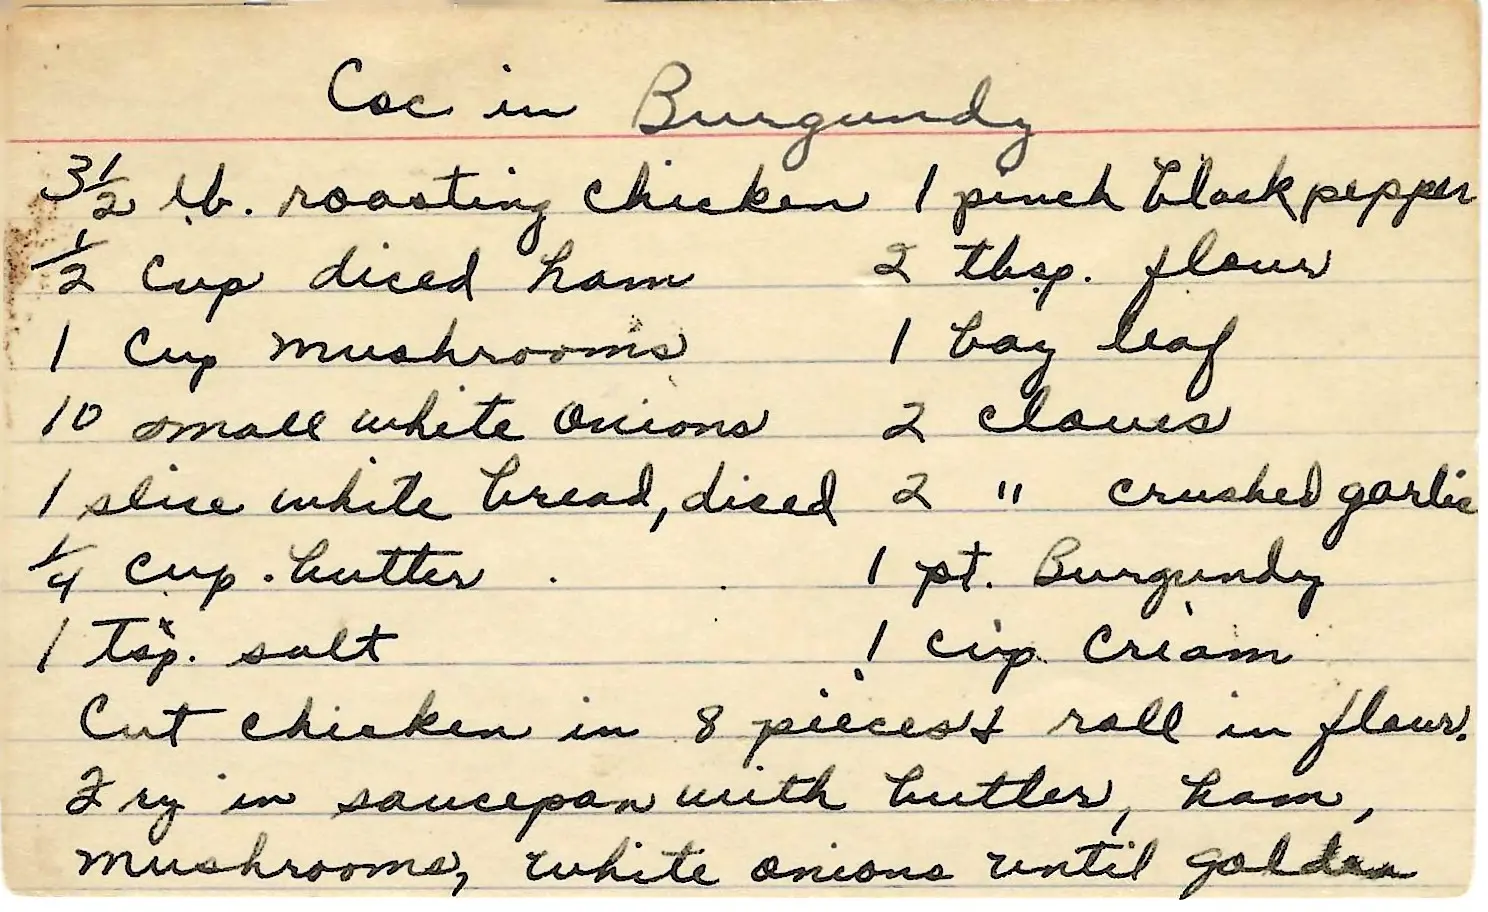 Coc in Burgundy
3 1/2 lb. roasting chicken 1 pinch black pepper
1/2 cup diced ham 2 tbsp. flour
1 cup mushrooms 1 bay leaf
10 small white onions 2 cloves
1 slice white bread, diced 2 " crushed garlic
1/4 cup butter 1 pt. Burgundy
1 tsp. salt 1 cup cream
Cut chicken in 8 pieces & roll in flour.
Fry in saucepan with butter, ham,
mushrooms, white onions until golden